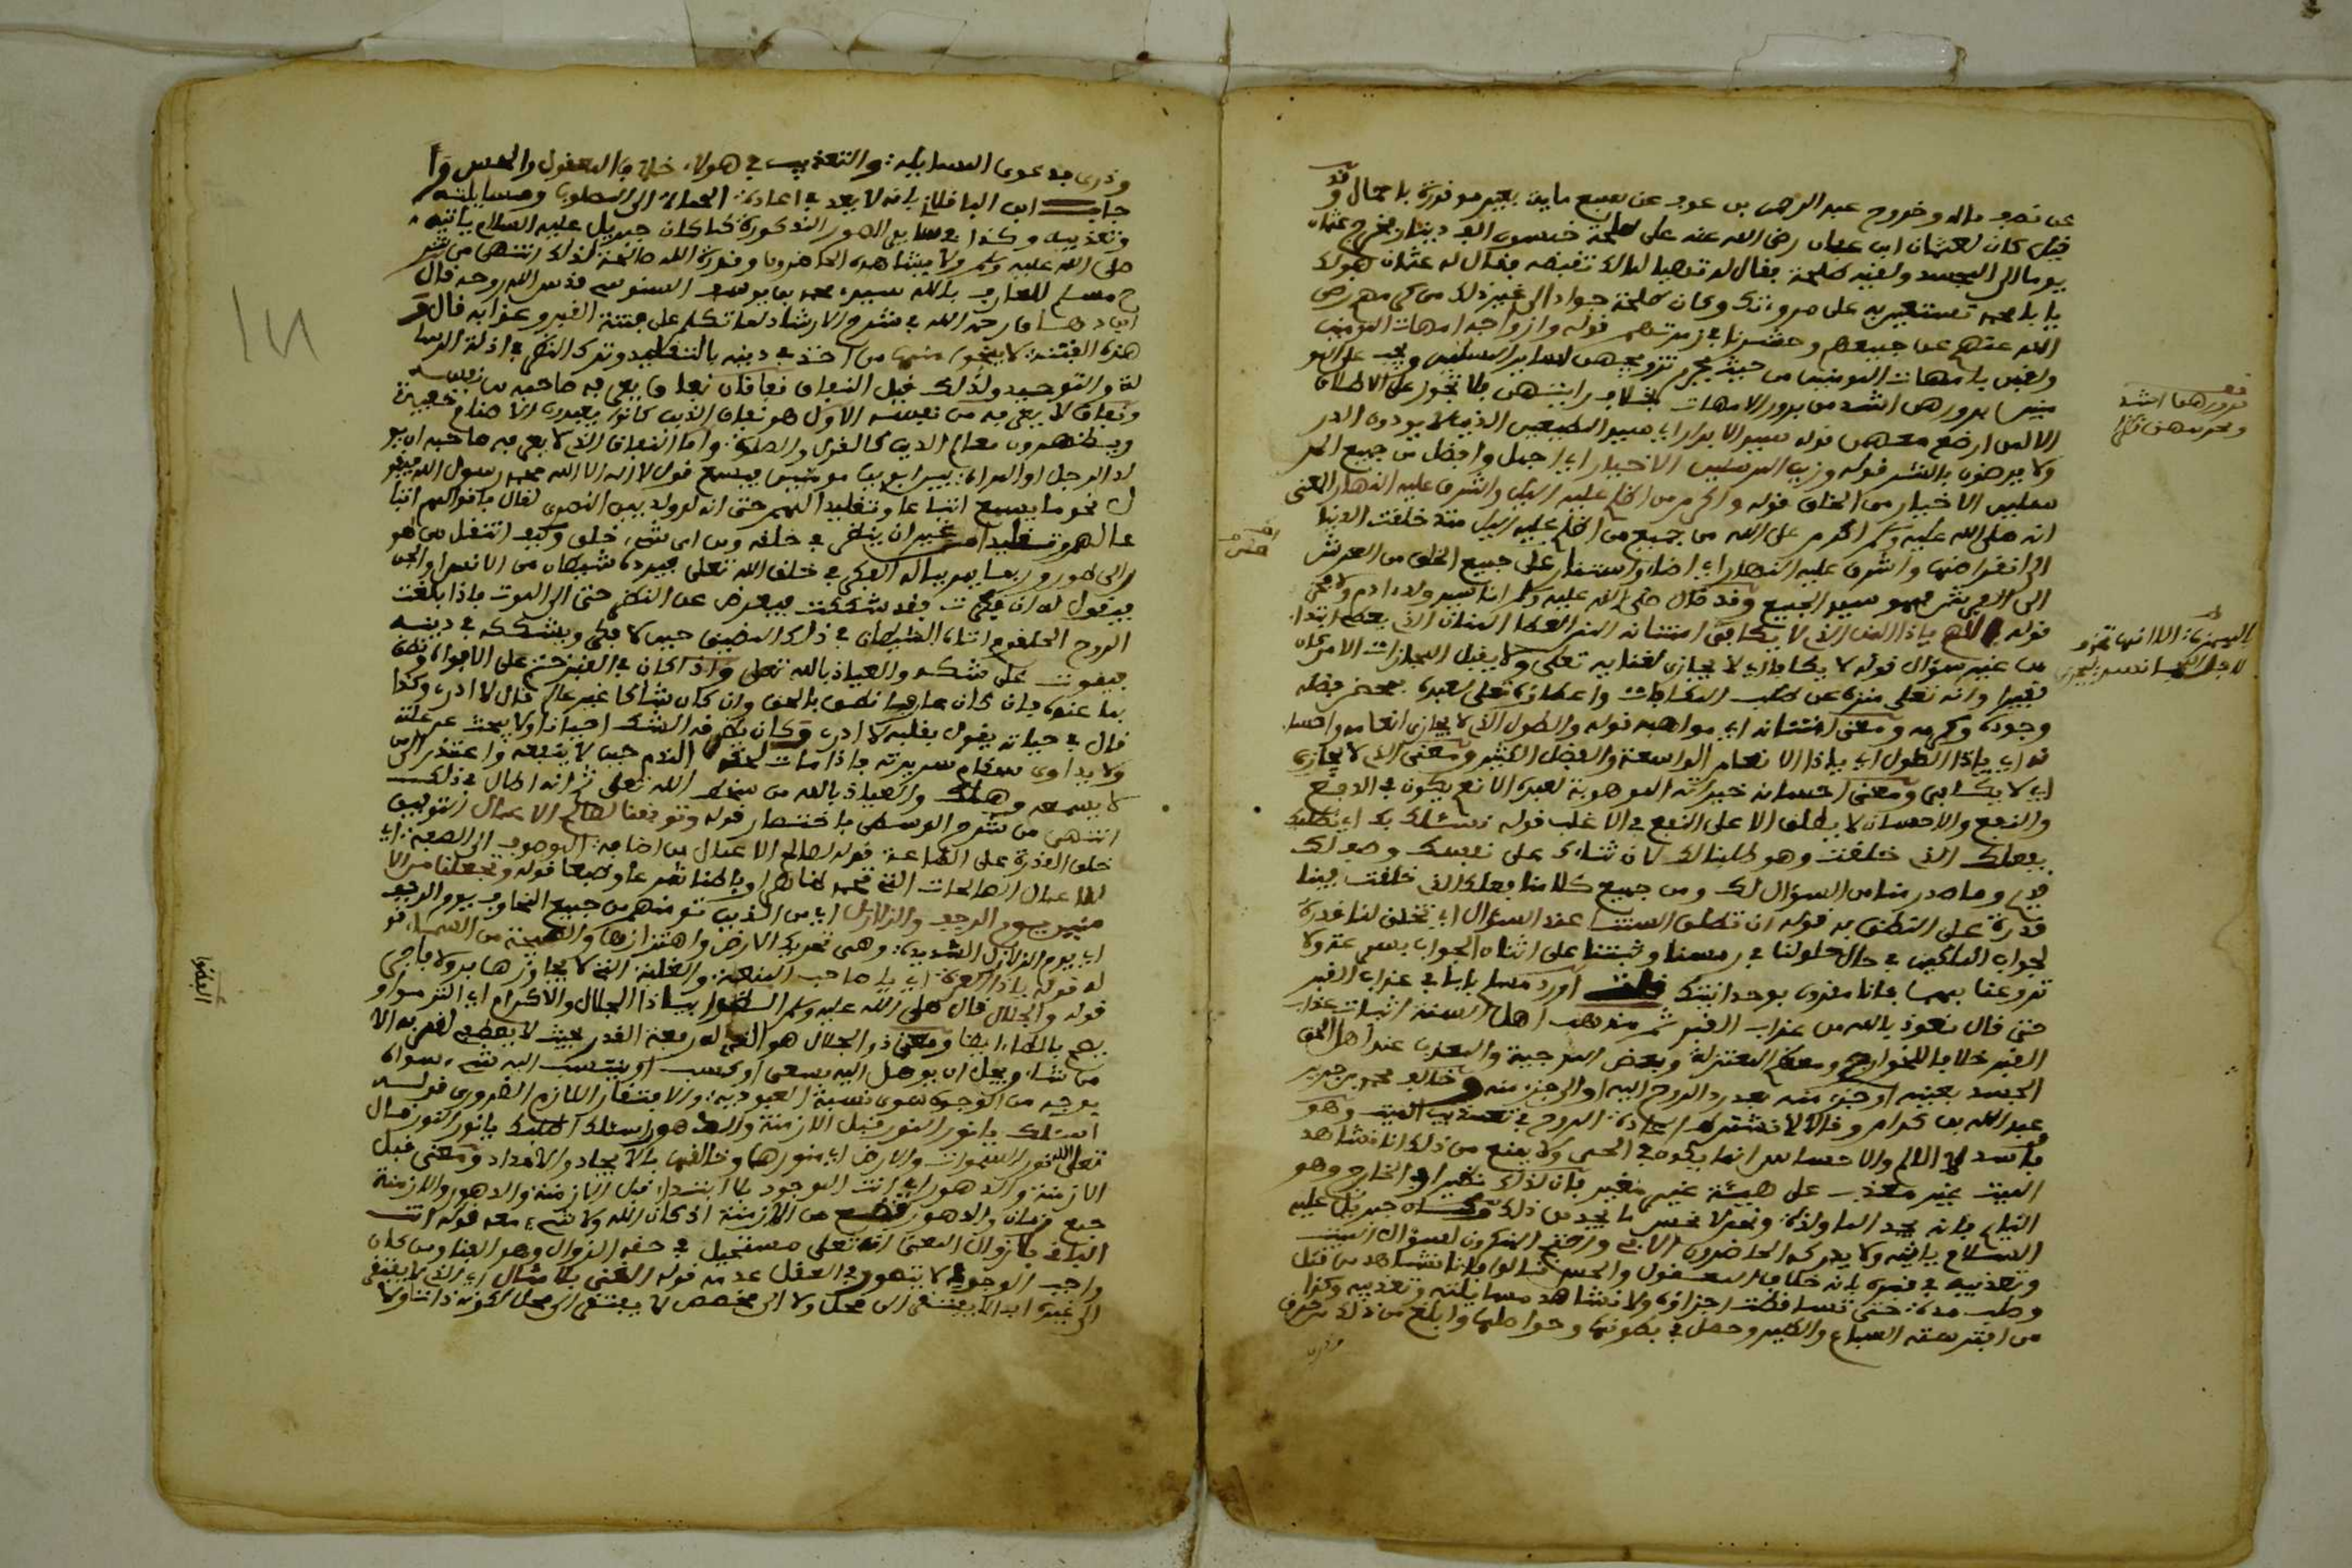 عن نصف ماله وخروج عبد الرحمن بن عوف عن سبع ماية بعير موفورة باحمال وقد
قيل كان لعثمان ابن عفان رضي الله عنه على طلحة خمسون الف دينار فخرج عثمان
يوما الى المسجد ولقيه طلحة فقال له تهيا لمالك تقبضه فقال له عثمان هولك
يا با محمد تستعين به على مروءتك وكان طلحة جوادا الى غير ذلك من كرمهم رضي
الله عنهم عن جميعهم وحشرنا في زمرتهم قوله وازواجه امهات المومنين
ولقبن بامهات المومنين من حيث تحريم تزويجهن لساير المسلمين ويجب على المو
منين برورهن اشد من برور الامهات بخلاف رايتهن فلا تجوز على الاطلاق
الا لمن ارضع معهن قوله سيد الابرار اي سيد المطيعين الذين لا يوذون الذر
ولا يرضون بالشر قوله وزين المرسلين الاخيار اي اجمل وافضل من جميع المر
سلين الاخيار من الخلق قوله واكرم من اظلم عليه الليل واشرق عليه النهار المعنى
انه صلى الله عليه وسلم اكرم على الله من جميع من اظلم عليه الليل منذ خلقت الدنيا
الى انقراضها واشرق عليه النهار اي اضاء واستنار على جميع الخلق من العرش
الى الفرش فهو سيد الجميع وقد قال صلى الله عليه وسلم انا سيد ولد ادم ولا فخر
قوله اللهم ياذا المن الذي لا يكافى امتنانه المن العطا المنان الذي يعطى ابتداء
من غير سؤال قوله لا يكافى اي لا يجازى لغنايه تعلى ولا يقبل المجازات الا من كان
فقيرا وانه تعلى منزه عن طلب المكافات واعطاؤه تعلى لعبده بمحض فضله
وجوده وكرمه ومعنى امتنانه اي مواهبه قوله والطول الذي لا يجازى انعامه واحسا
نه اي ياذا الطول اي ياذا الانعام الواسعة والفضل الكثير ومعنى الذي لا يجازى
اي لا يكافى ومعنى احسانه خيراته الموهوبة لعبده الانعام يكون في الدفع
والنفع والاحسان لا يطلق الا على النفع في الاغلب قوله نسئلك بك اي نطلبك
بفعلك الذي خلقت وهو طلبنا لك لان ثناءك على نفسك وصف لك
قديم وما صدر منا من السؤال لك ومن جميع كلامنا فعلك الذي خلقت فينا
قدرة على النطق به قوله ان تطلق السنتنا عند السؤال اي تخلق لنا قدرة
لجواب الملكين في حال حلولنا في رمسنا وثبتنا على اثناء الجواب بسرعة ولا
تروعنا بهما فانا مقرون بوحدانيتك قلت اورد مسلم بابا في عذاب القبر
حتى قال نعوذ بالله من عذاب القبر ثم مذهب اهل السنة اثبات عذاب
القبر خلافا للخوارج ومعظم المعتزلة وبعض المرجية والمعذب عند اهل الحق
الجسد بعينه او جزء منه بعد رد الروح اليه او الى جزء منه وخالف محمد بن جرير
عبد الله بن كرام وقالا لا تشترط اعادة الروح في تعذيب الميت وهو
فاسد لان الالم والاحساس انما يكون في الحي ولا يمنع من ذلك انا نشاهد
الميت غير معذب على هيئة غير متغير فان لذلك نظيرا في الخارج وهو
النايم فانه يجد الما ولذة ونحن لا نحس ما يجد من ذلك وكان جبريل عليه
السلام ياتيه ولا يدركه الحاضرون واحتج المنكرون لسؤال الميت
وتعذيبه في قبره بانه خلاف المعقول والحس قالوا فانا نشاهد من قتل
وصلب مدة حتى تساقطت اجزاؤه ولا نشاهد مسايلته وتعذيبه وكذا
من افترسته السباع والطير وحصل في بطونها وحواصلها وابلغ من ذلك من حرق
وذري
برورهما اشد
وذري فدعوى المسايلة والتعذيب في هولاء خلاف المعقول والحس وا
جاب ابن الباقلاني بانه لا يعد في اعادة الحياة الى المصلوب ومسايلته
وتعذيبه وكذا في ساير الصور المذكورة كما كان جبريل عليه السلام ياتيه
صلى الله عليه وسلم ولا يشاهده الحاضرون وقدرة الله صالحة لذلك انتهى من شر
ح مسلم للعارف بالله سيدي محمد بن يوسف السنوسي قدس الله روحه قال
ابن دهاق رحمه الله في شرح الارشاد لما تكلم على فتنة القبر وعذابه قال و
هذه الفتنة لا ينجوا منها من اخذ في دينه بالتقليد وترك النظر في ادلة الرسا
لة والتوحيد ولذلك قيل النفاق نفاقان نفاق يعرفه صاحبه من نفسه
ونفاق لا يعرفه من نفسه الاول هو نفاق الذين كانوا يعبدون الاصنام خفية
ويظهرون معالم الدين كالغزو والصلاة واما النفاق الذي لا يعرفه صاحبه ان يو
لد الرجل او المراة بين ابوين مومنين فيسمع قول لا اله الا الله محمد رسول الله فيقو
ل نحو ما يسمع اتباعا وتقليدا لهم حتى انه لو ولد بين النصرى لقال باقوالهم اتبا
عا لهم وتقليدا من غير ان ينظر في خلقه ومن اي شيء خلق وكيف انتقل من طور
الى طور وربما يمر بباله الفكر في خلق الله تعلى فيرده شيطان من الانس او الجن
فيقول له ان فكرت فقد شككت فيعرض عن النظر حتى الى الموت فاذا بلغت
الروح الحلقوم اتاه الشيطان في ذلك المضيق حين لا فكر ويشككه في دينه
فيموت على شك والعياذ بالله تعلى واذا كان في القبر ختم على الافواه ونطق
بما عنده فان كان عارفا نطق بالحق وان كان شاكا غير عالم قال لا ادري وكذا
قال في حياته يقول بقلبه لا ادري وكان يطرقه الشك احيانا ولا يبحث عن علته
ولا يداوى سقام سريرته فاذا مات لحقه الندم حين لا ينفعه واعتذر الى من
لا يسمعه وهلك والعياذ بالله من سخط الله تعلى ثم انه اطال في ذلك
انتهى من شرح الوسطى باختصار قوله وتوفيقنا لصالح الاعمال التوفيق
خلق القدرة على الطاعة قوله لصالح الاعمال من اضافة الموصوف الى الصفة اي
للاعمال الصالحات التي تحمد ظاهرا وباطنا شرعا وطبعا قوله وتجعلنا من الا
منين يوم الرجف والزلازل اي من الذين تؤمنهم من جميع المخاوف يوم الرجف
اي يوم الزلازل الشديدة وهي تحريك الارض واهتزازها والصيحة من السماء قو
له قوله ياذا العزة اي يا صاحب المنعة والغلبة التي لا يجاوزها بر ولا فاجر
قوله والجلال قال صلى الله عليه وسلم الظوا بياذا الجلال والاكرام اي التزموا و
يصح بالطاء ايضا ومعنى ذو الجلال هو الذي له رفعة القدر بحيث لا يعطى لغيره الا
من شاء ويجل ان يوصل اليه بسعي او كسب او ينتسب اليه شيء سواه
بوجه من الوجوه سوى نسبة العبودية والافتقار اللازم الضروري قوله
اسئلك يا نور النور قبل الازمنة والدهور اسئلك اطلبك يا نور النور قال
تعلى الله نور السموات والارض اي منورها وخالقها بالايجاد والامداد ومعنى قبل
الازمنة والدهور اي انت الموجود بلا ابتداء قبل الازمنة والدهور والازمنة
جمع زمان والدهور قطع من الازمنة اذ كان الله ولا شيء معه قوله انت
الباقي بلا زوال المعنى انه تعلى مستحيل في حقه الزوال وهو الفنا ومن كان
واجب الوجود لا يتصور في العقل عدمه قوله الغني بلا مثال اي الذي لا يفتقر
الى غيره ابدا لا يفتقر الى محل ولا الى مخصص لا يفتقر الى محل لكونه ذاتا ولا